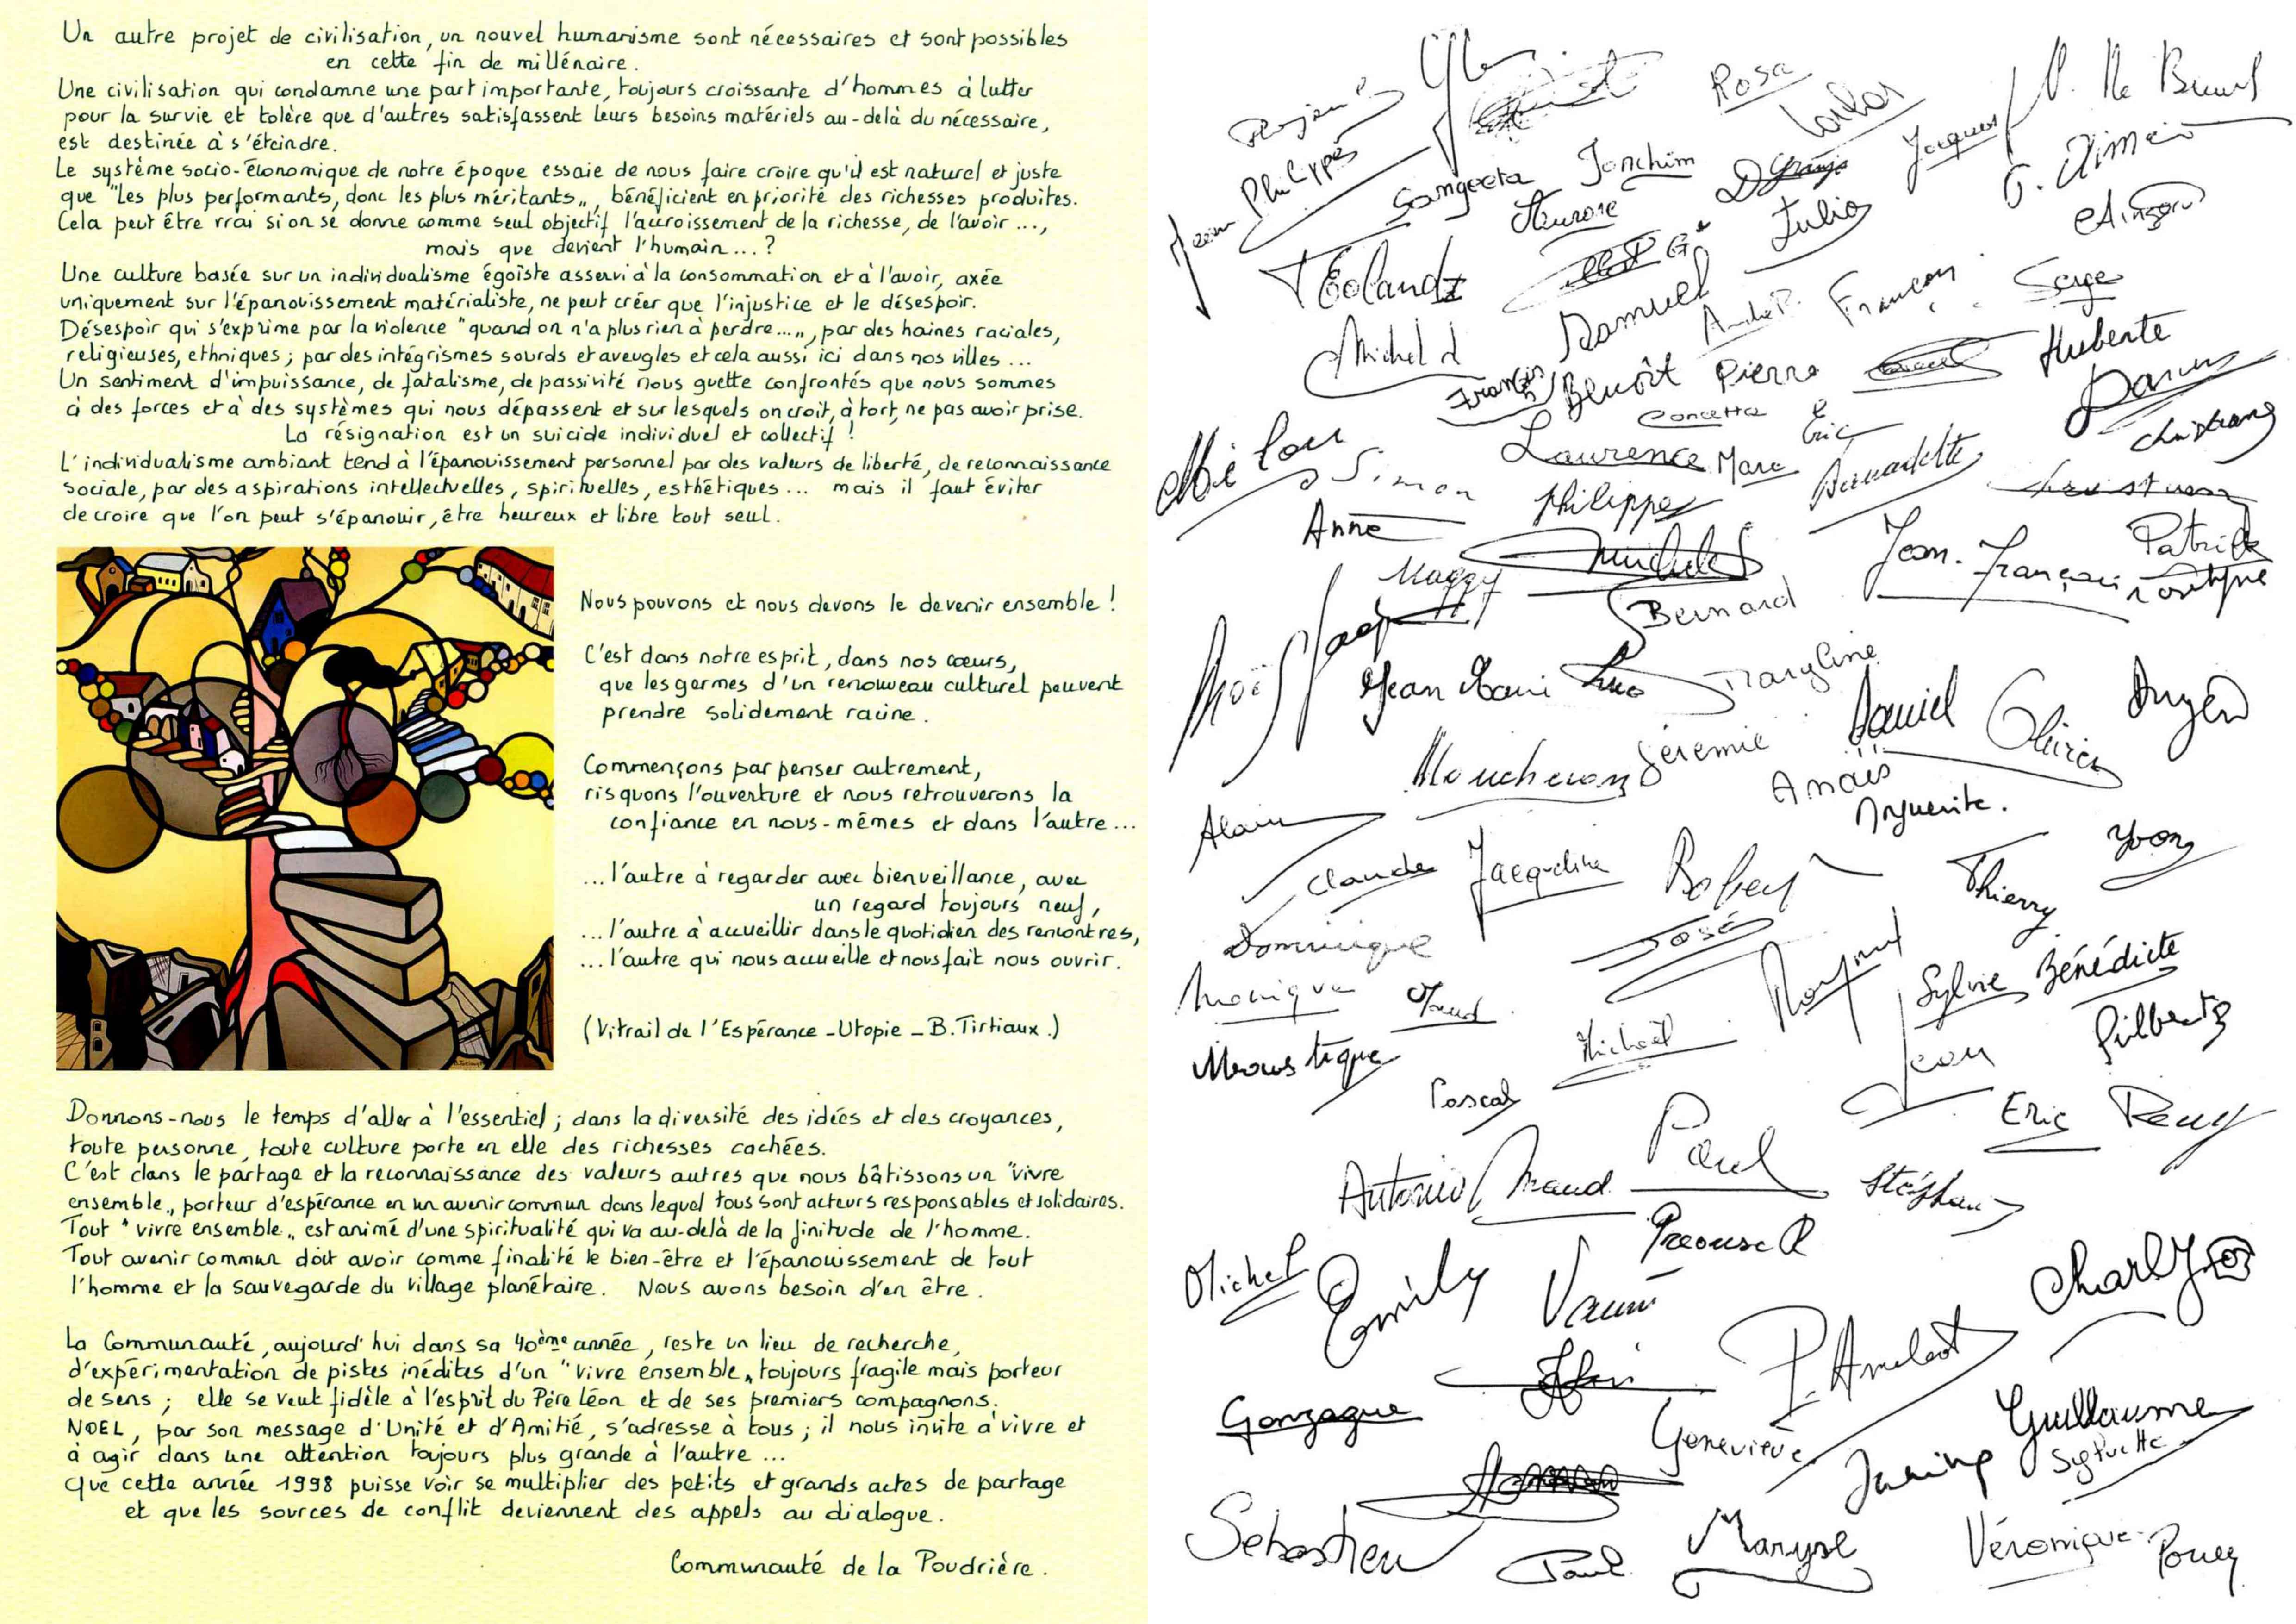 Un autre projet de civilisation, un nouvel humanisme sont nécessaires et sont possibles
en cette fin de millénaire.
Une civilisation qui condamne une part importante, toujours croissante d'hommes à lutter
pour la survie et tolère que d'autres satisfassent leurs besoins matériels au-delà du nécessaire,
est destinée à s'éteindre.
Le système socio-économique de notre époque essaie de nous faire croire qu'il est naturel et juste
que "les plus performants, donc les plus méritants„, bénéficient en priorité des richesses produites.
Cela peut être vrai si on se donne comme seul objectif l'accroissement de la richesse, de l'avoir ...,
mais que devient l'humain...?
Une culture basée sur un individualisme égoïste asservi à la consommation et à l'avoir, axée
uniquement sur l'épanouissement matérialiste, ne peut créer que l'injustice et le désespoir.
Désespoir qui s'exprime par la violence "quand on n'a plus rien à perdre...„, par des haines raciales,
religieuses, ethniques ; par des intégrismes sourds et aveugles et cela aussi ici dans nos villes ...
Un sentiment d'impuissance, de fatalisme, de passivité nous guette confrontés que nous sommes
à des forces et à des systèmes qui nous dépassent et sur lesquels on croit, à tort, ne pas avoir prise.
La résignation est un suicide individuel et collectif !
L'individualisme ambiant tend à l'épanouissement personnel par des valeurs de liberté, de reconnaissance
sociale, par des aspirations intellectuelles, spirituelles, esthétiques... mais il faut éviter
de croire que l'on peut s'épanouir, être heureux et libre tout seul.
Nous pouvons et nous devons le devenir ensemble !
C'est dans notre esprit, dans nos cœurs,
que les germes d'un renouveau culturel peuvent
prendre solidement racine.
Commençons par penser autrement,
risquons l'ouverture et nous retrouverons la
confiance en nous-mêmes et dans l'autre...
...l'autre à regarder avec bienveillance, avec
un regard toujours neuf,
...l'autre à accueillir dans le quotidien des rencontres,
...l'autre qui nous accueille et nous fait nous ouvrir.
(Vitrail de l'Espérance - Utopie - B. Tirtiaux.)
Donnons-nous le temps d'aller à l'essentiel ; dans la diversité des idées et des croyances,
toute personne, toute culture porte en elle des richesses cachées.
C'est dans le partage et la reconnaissance des valeurs autres que nous bâtissons un "vivre
ensemble„ porteur d'espérance en un avenir commun dans lequel tous sont acteurs responsables et solidaires.
Tout "vivre ensemble„ est animé d'une spiritualité qui va au-delà de la finitude de l'homme.
Tout avenir commun doit avoir comme finalité le bien-être et l'épanouissement de tout
l'homme et la sauvegarde du village planétaire. Nous avons besoin d'en être.
La Communauté, aujourd'hui dans sa 40ème année, reste un lieu de recherche,
d'expérimentation de pistes inédites d'un "vivre ensemble„ toujours fragile mais porteur
de sens ; elle se veut fidèle à l'esprit du Père Léon et de ses premiers compagnons.
NOEL, par son message d'Unité et d'Amitié, s'adresse à tous ; il nous invite à vivre et
à agir dans une attention toujours plus grande à l'autre ...
Que cette année 1998 puisse voir se multiplier des petits et grands actes de partage
et que les sources de conflit deviennent des appels au dialogue.
Communauté de la Poudrière.
Rosa
Jean Philippe
Sangeeta Joachim
Jacques
Aurore
Julio
Samuel
André P.
François
Serge
Michel
Francis Benoît Pierre
Huberte
Concetta
Laurence Marc
Eric
Simon
Philippe
Bernadette
Anne
Michel
Jean-François
Patrick
Maggy
Bernard
Jean Marie
Maryline
Daniel
Olivier
Moucheron
Jérémie
Anaïs
Alain
Claude Jacqueline
Robert
Thierry
Yvon
Dominique
José
Monique
Maud
Raymond
Sylvie Bénédicte
Michaël
Moustique
Jean
Pascal
Paul
Eric
Remy
Antonio
Maud
Stéphan
Michel
Emily
Charly
Gonzague
Geneviève
Guillaume
Janine
Sylvette
Sébastien
Paul
Maryse
Véronique